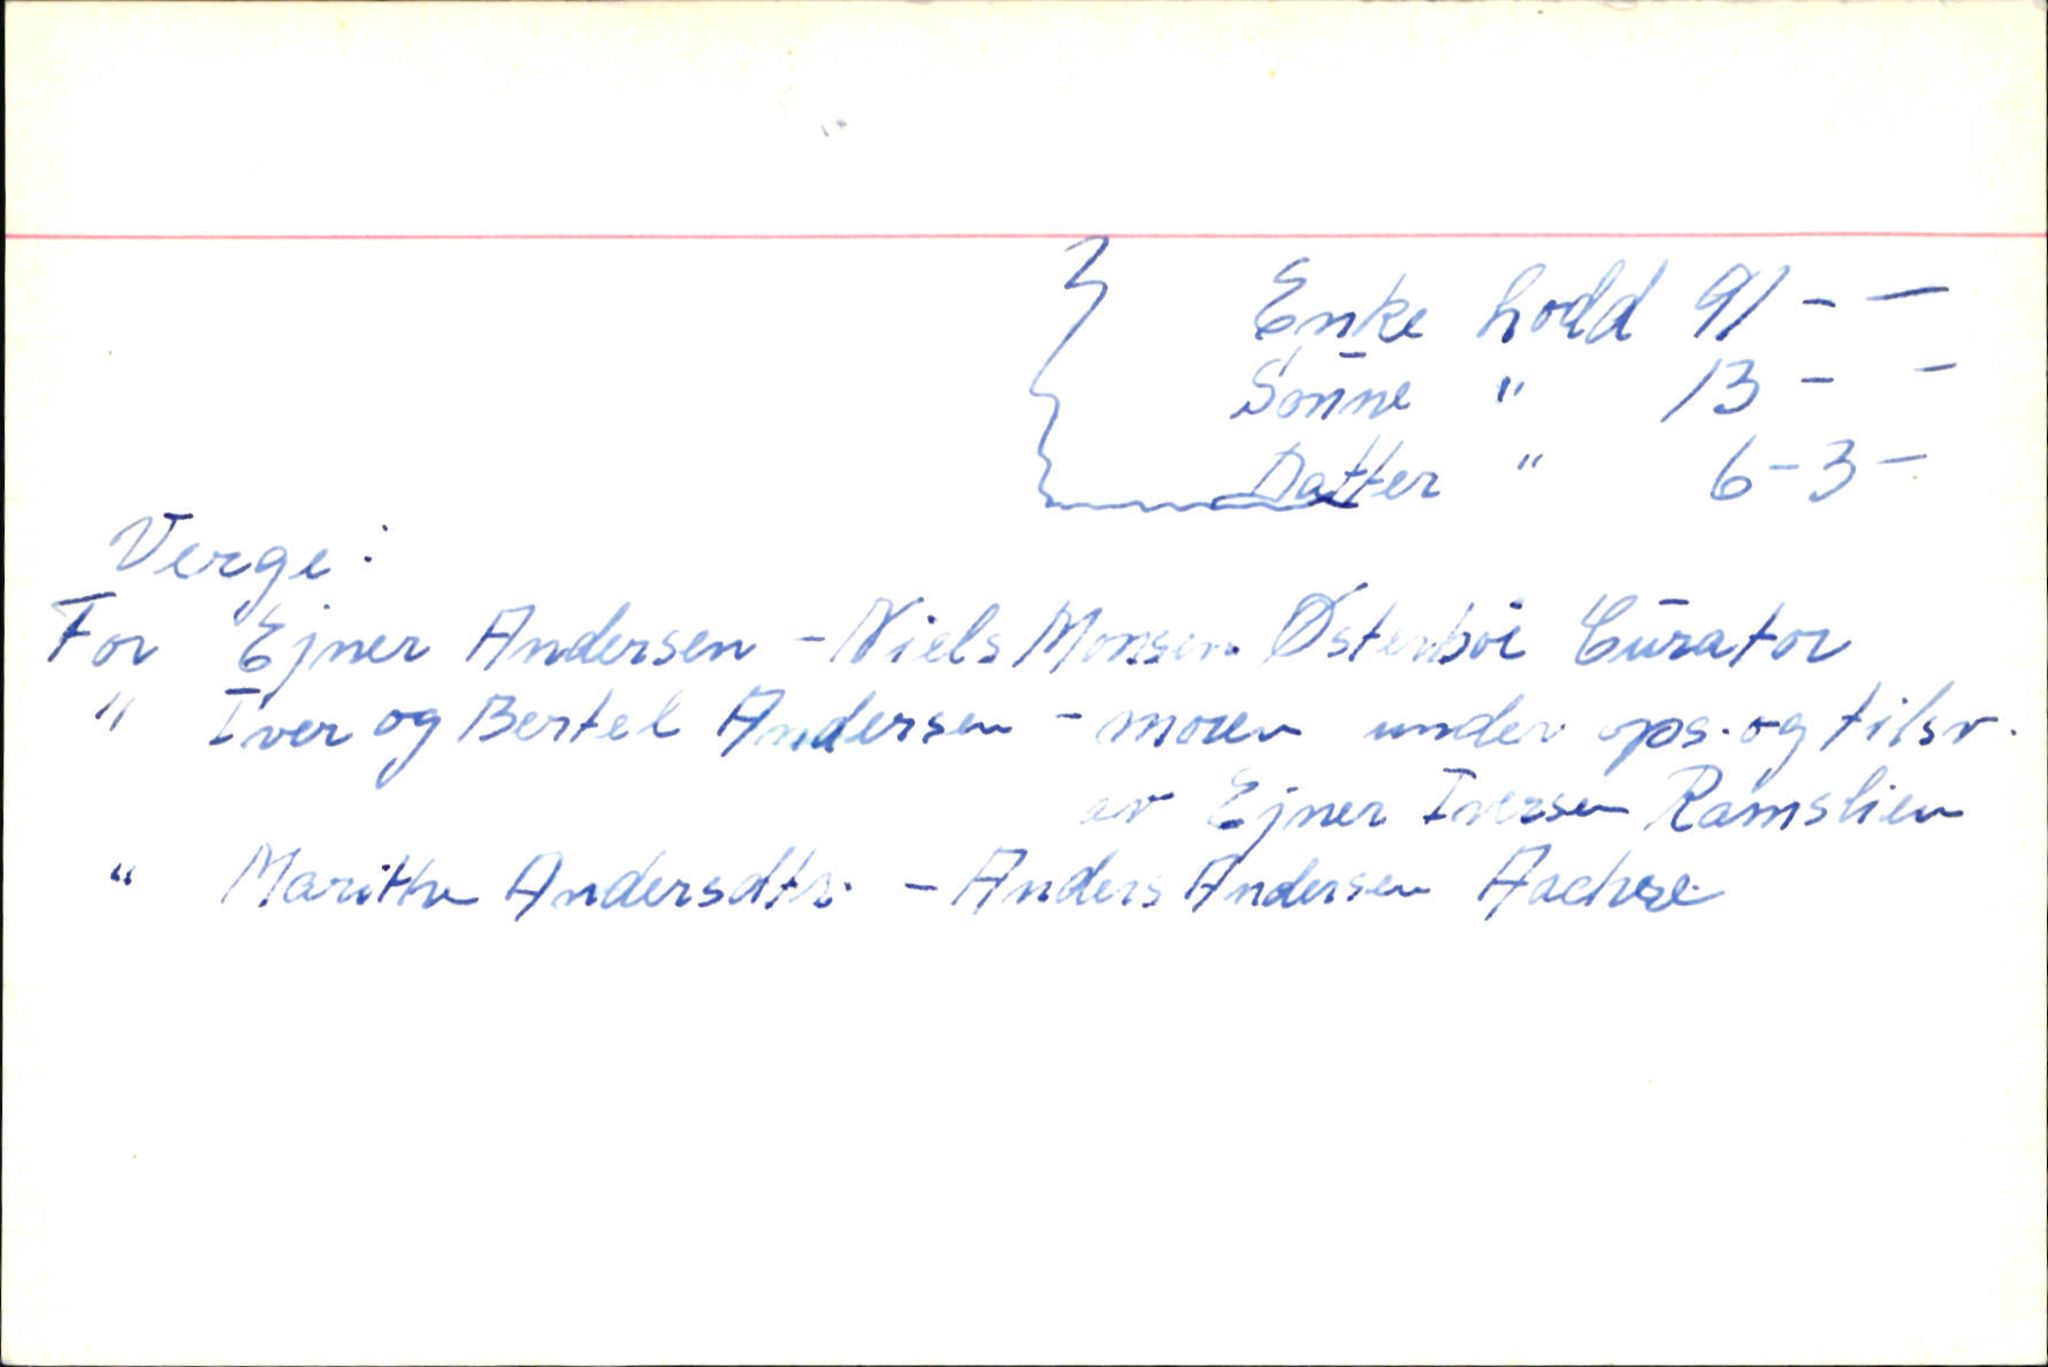 Enke lodd 91 - -
Sønne " 13 - -
Datter " 6-3-
Verge:
For Ejner Andersen - Niels Monsen Østerbøe Curator
" Iver og Bertel Andersen - moren under ops. og tilsr.
av Ejner Iversen Ramslien
" Marithe Andersdtr. - Anders Andersen